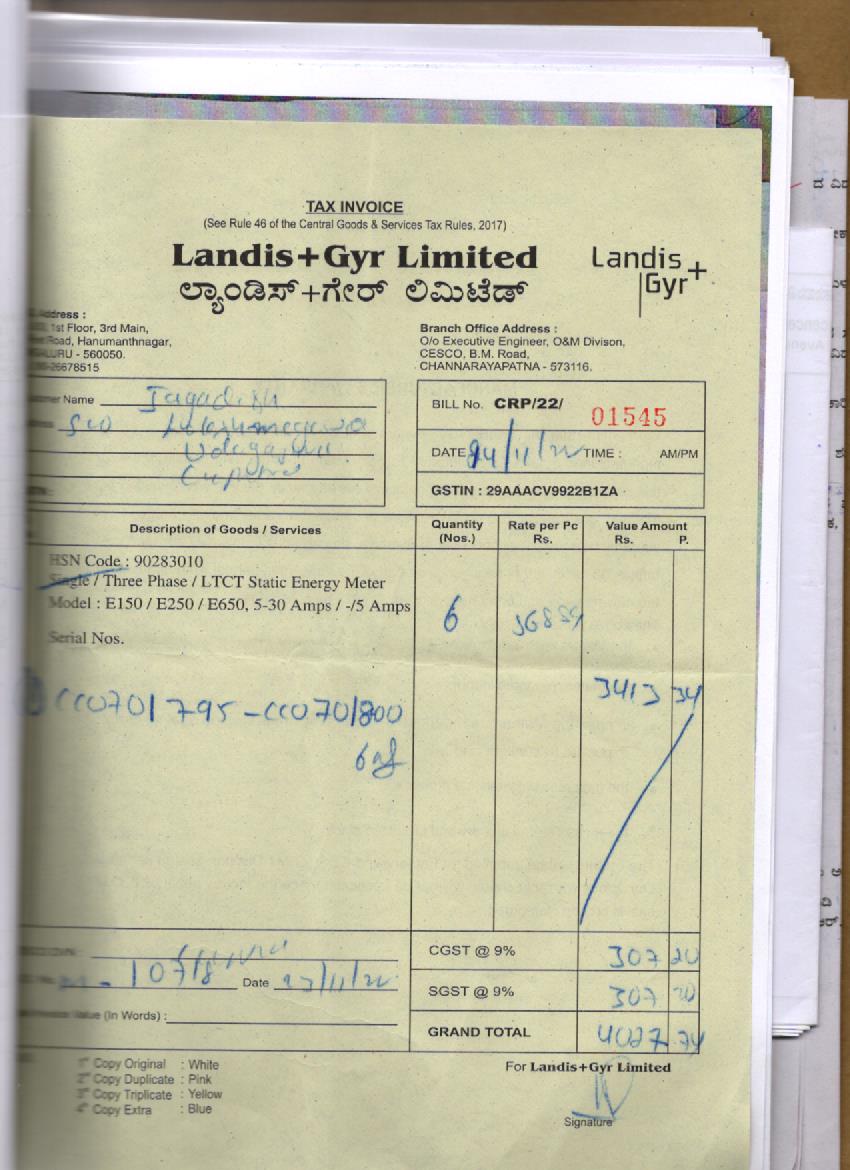 TAX INVOICE
(See Rule 46 of the Central Goods & Services Tax Rules, 2017)
Landis+Gyr Limited
ಲ್ಯಾಂಡಿಸ್+ಗೇರ್ ಲಿಮಿಟೆಡ್
Landis+
Gyr
Address :
1st Floor, 3rd Main,
Road, Hanumanthnagar,
- 560050.
26678515
Branch Office Address :
O/o Executive Engineer, O&M Divison,
CESCO, B.M. Road,
CHANNARAYAPATNA - 573116.
Name Jagadish
S/o
BILL No. CRP/22/ 01545
DATE 24/11/22 TIME : AM/PM
GSTIN : 29AAACV9922B1ZA
Description of Goods / Services Quantity (Nos.) Rate per Pc Rs. Value Amount Rs. P.
HSN Code : 90283010
Single / Three Phase / LTCT Static Energy Meter
Model : E150 / E250 / E650, 5-30 Amps / -/5 Amps
6
Serial Nos.
3413 34
CC0701795 - CC0701800
CGST @ 9% 307 20
Date 23/11/22
SGST @ 9% 307 20
Value (In Words) :
GRAND TOTAL 4027 74
1st Copy Original : White
2nd Copy Duplicate : Pink
3rd Copy Triplicate : Yellow
4th Copy Extra : Blue
For Landis+Gyr Limited
Signature